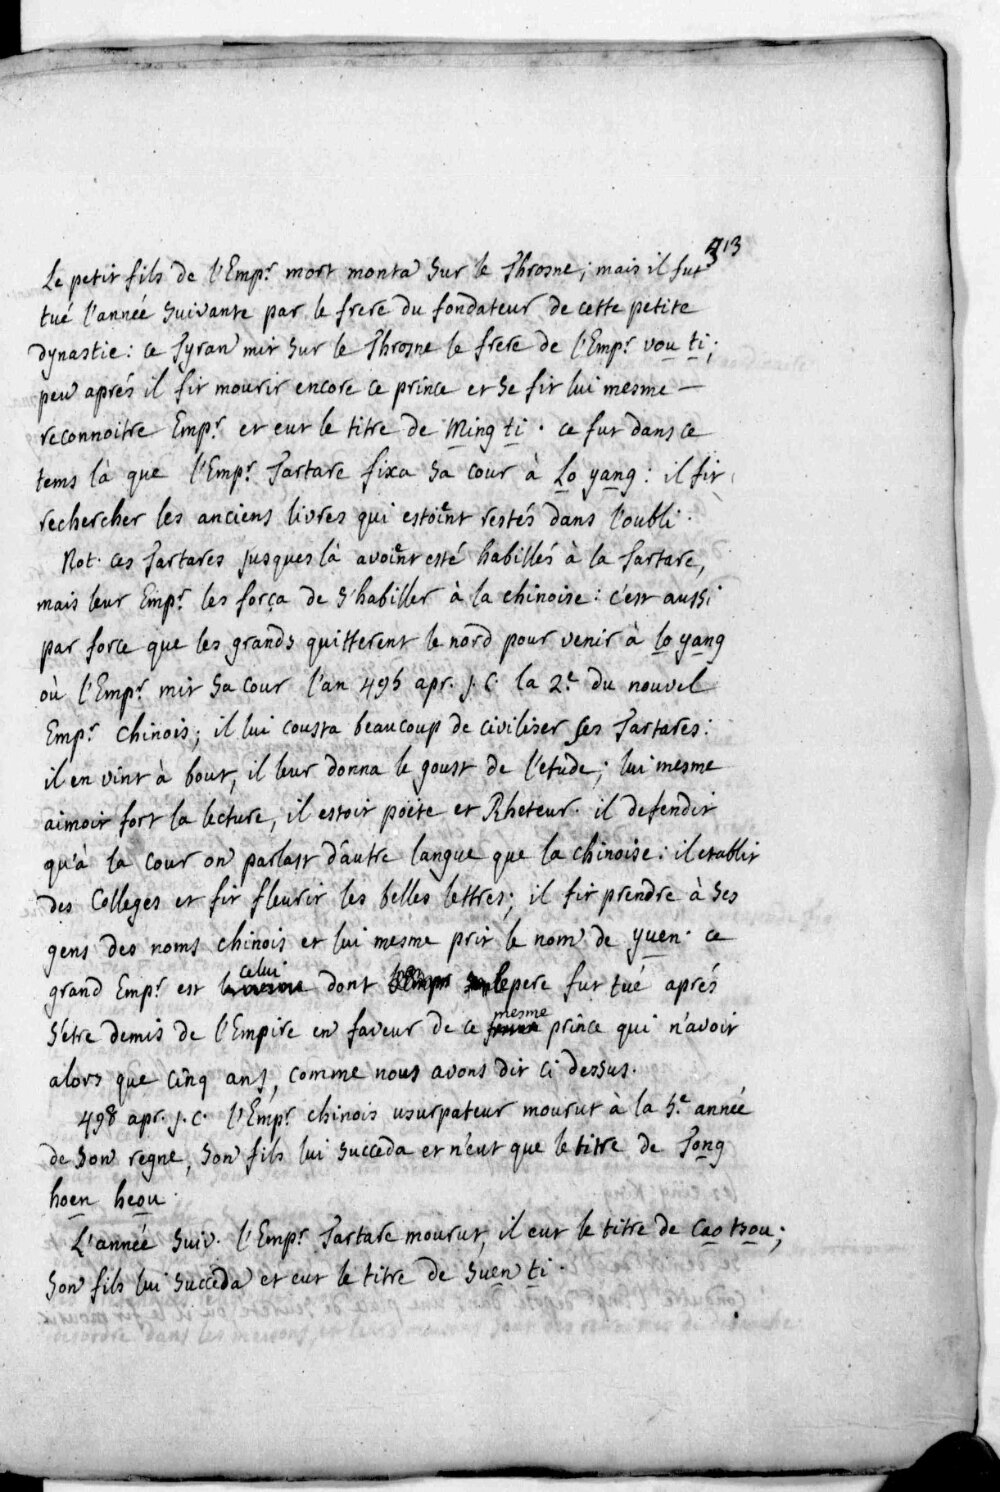 313
Le petit fils de l'Emp.r mort monta sur le Throsne; mais il fut
tué l'année suivante par le frere du fondateur de cette petite
dynastie: ce Tyran mit sur le Throsne le frere de l'Emp.r vou ti;
peu aprés il fit mourir encore ce prince et se fit lui mesme —
reconnoitre Emp.r et eut le titre de Ming ti. ce fut dans ce
tems là que l'Emp.r Tartare fixa sa cour à Lo yang: il fit
rechercher les anciens livres qui estoient restés dans l'oubli.
Not. ces Tartares jusques là avoient esté habillés à la Tartare,
mais leur Emp.r les força de s'habiller à la chinoise: c'est aussi
par force que les grands quitterent le nord pour venir à lo yang
où l'Emp.r mit sa cour l'an 495 apr. J. C. la 2.e du nouvel
Emp.r chinois; il lui cousta beaucoup de civiliser ses Tartares:
il en vint à bout, il leur donna le goust de l'etude; lui mesme
aimoit fort la lecture, il estoit poëte et Rheteur. il defendit
qu'à la cour on parlast d'autre langue que la chinoise: il etablit
des Colleges et fit fleurir les belles lettres; il fit prendre à ses
gens des noms chinois et lui mesme prit le nom de yuen. ce
grand Emp.r est celui dont le pere fut tué aprés
s'etre demis de l'Empire en faveur de ce mesme prince qui n'avoit
alors que cinq ans, comme nous avons dit ci dessus.
498 apr. J. C. l'Emp.r chinois usurpateur mourut à la 5.e année
de son regne, son fils lui succeda et n'eut que le titre de Tong
hoen heou.
L'année suiv. l'Emp.r Tartare mourut, il eut le titre de Cao tsou;
son fils lui succeda et eut le titre de Suen ti.